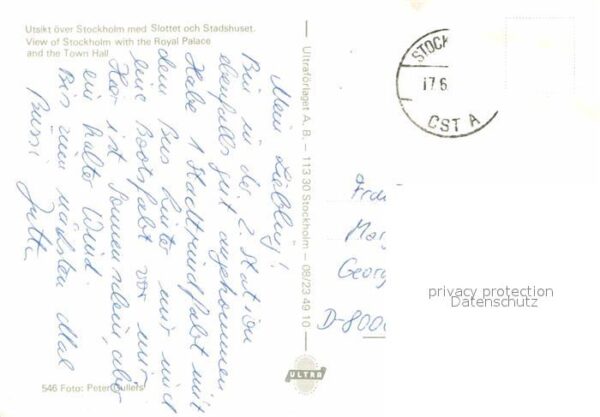 Utsikt över Stockholm med Slottet och Stadshuset.
View of Stockholm with the Royal Palace
and the Town Hall
Mein Liebling!
Bin in der 2. Station
ebenfalls gut angekommen
Habe 1 Stadtrundfahrt mit
dem Bus hinter mir und
eine Bootsfahrt vor mir
Hier ist Sonnenschein, aber
ein kalter Wind.
Bis zum nächsten Mal
Bussi Jutta
546 Foto: Peter Gullers
Ultraförlaget A.B. – 113 30 Stockholm – 08/23 49 10
ULTRA
STOCK
17.6
CST A
Frau
Mar
Georg
D-8000
privacy protection
Datenschutz